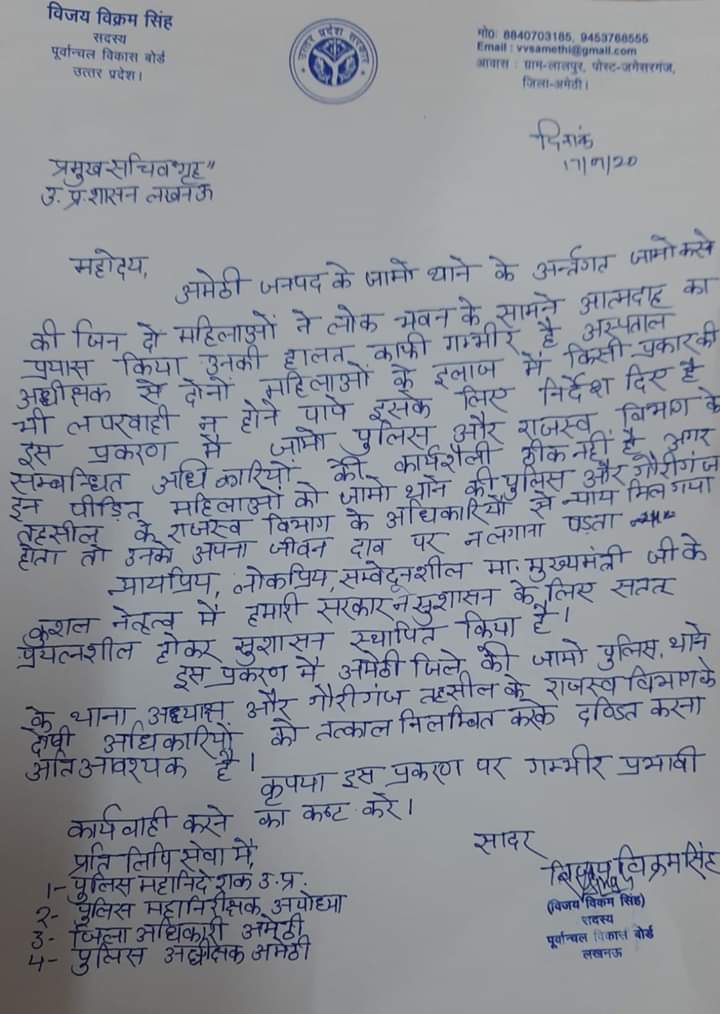 विजय विक्रम सिंह
सदस्य
पूर्वान्चल विकास बोर्ड
उत्तर प्रदेश।
उत्तर प्रदेश सरकार
मो0: 8840703185, 9453768555
Email : vvsamethi@gmail.com
आवास : ग्राम-लालपुर, पोस्ट-जगेसरगंज,
जिला-अमेठी।
दिनांक
17/7/20
प्रमुख सचिव "गृह"
उ. प्र. शासन लखनऊ
महोदय,
अमेठी जनपद के जामो थाने के अर्न्तगत जामो कस्बे
की जिन दो महिलाओं ने लोक भवन के सामने आत्मदाह का
प्रयास किया उनकी हालत काफी गम्भीर है अस्पताल
अधीक्षक से दोनों महिलाओं के इलाज में किसी प्रकार की
भी लपरवाही न होने पाये इसके लिए निर्देश दिए है
इस प्रकरण मै जामो पुलिस और राजस्व विभाग के
सम्बन्धित अधिकारियों की कार्यशैली ठीक नहीं है अगर
इन पीड़ित महिलाओं को जामो थाने की पुलिस और गौरीगंज
तहसील के राजस्व विभाग के अधिकारियों से न्याय मिल गया
होता तो उनके अपना जीवन दाव पर न लगाना पड़ता
न्यायप्रिय, लोकप्रिय, सम्वेदनशील मा. मुख्यमंत्री जी के
कुशल नेतृत्व में हमारी सरकार ने सुशासन के लिए सतत
प्रयत्नशील होकर सुशासन स्थापित किया है।
इस प्रकरण मै अमेठी जिले की जामो पुलिस, थाने
के थाना अध्यक्ष और गौरीगंज तहसील के राजस्व विभाग के
दोषी अधिकारियों को तत्काल निलम्बित करके दण्डित करना
अति आवश्यक है।
कृपया इस प्रकरण पर गम्भीर प्रभावी
कार्यवाही करने का कष्ट करे।
सादर
प्रति लिपि सेवा में,
1- पुलिस महानिदेशक उ. प्र.
2- पुलिस महानिरीक्षक अयोध्या
3- जिला अधिकारी अमेठी
4- पुलिस अधीक्षक अमेठी
विजय विक्रम सिंह
(विजय विक्रम सिंह)
सदस्य
पूर्वान्चल विकास बोर्ड
लखनऊ